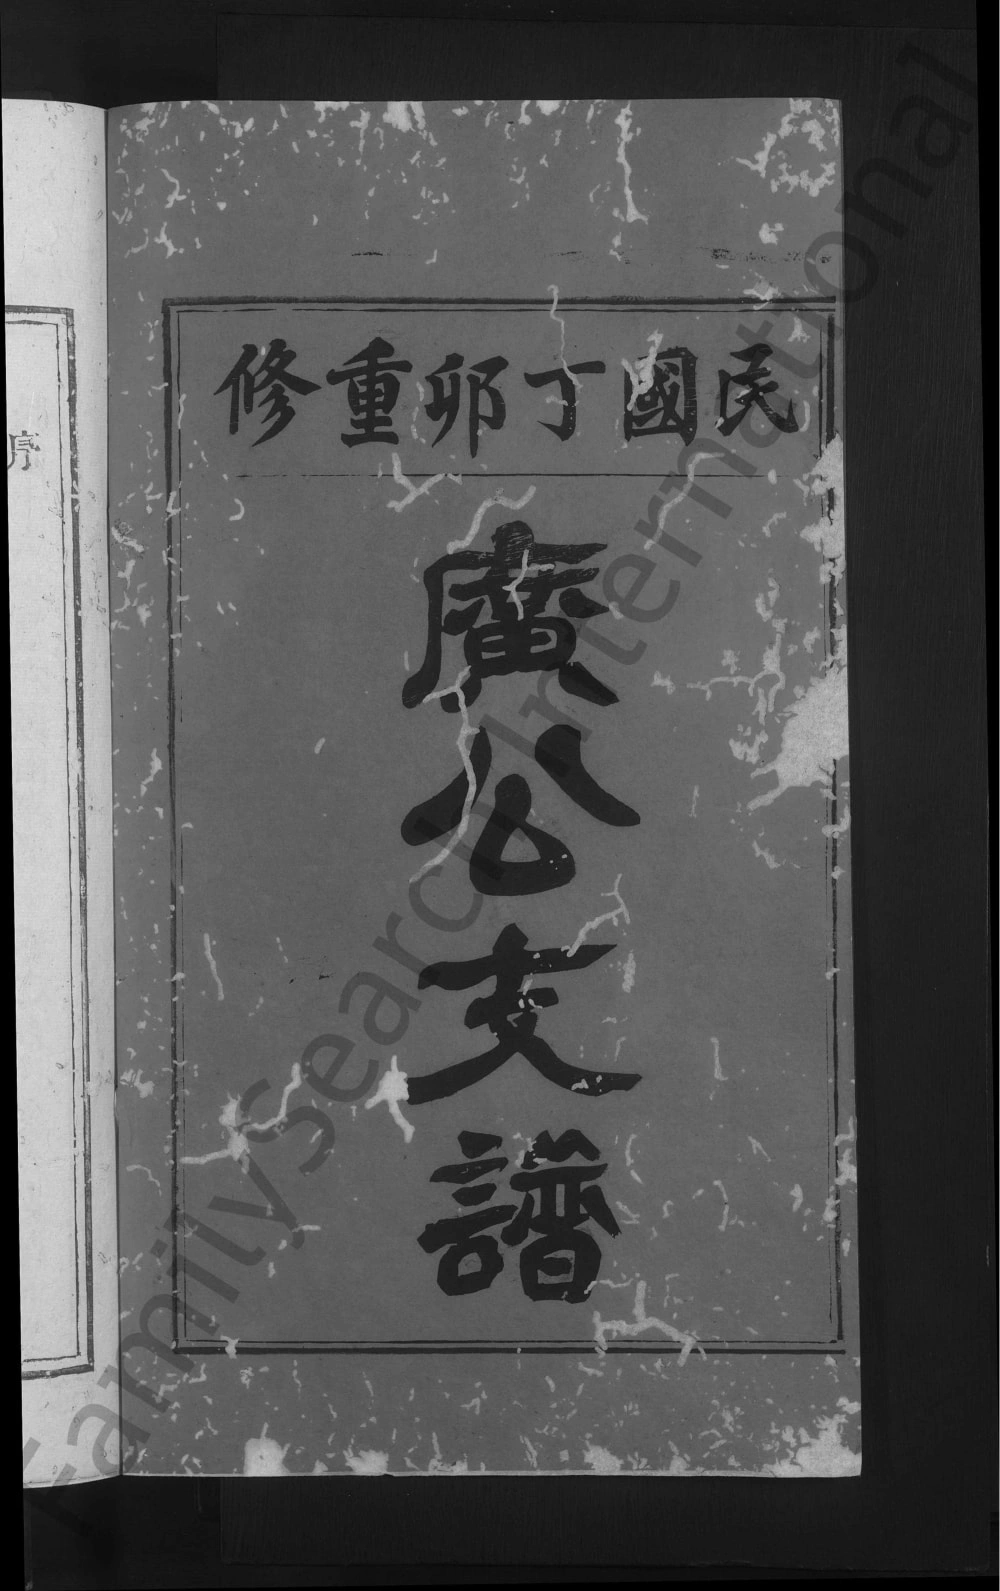 民國丁卯重修
廣公支譜
序
FamilySearch International